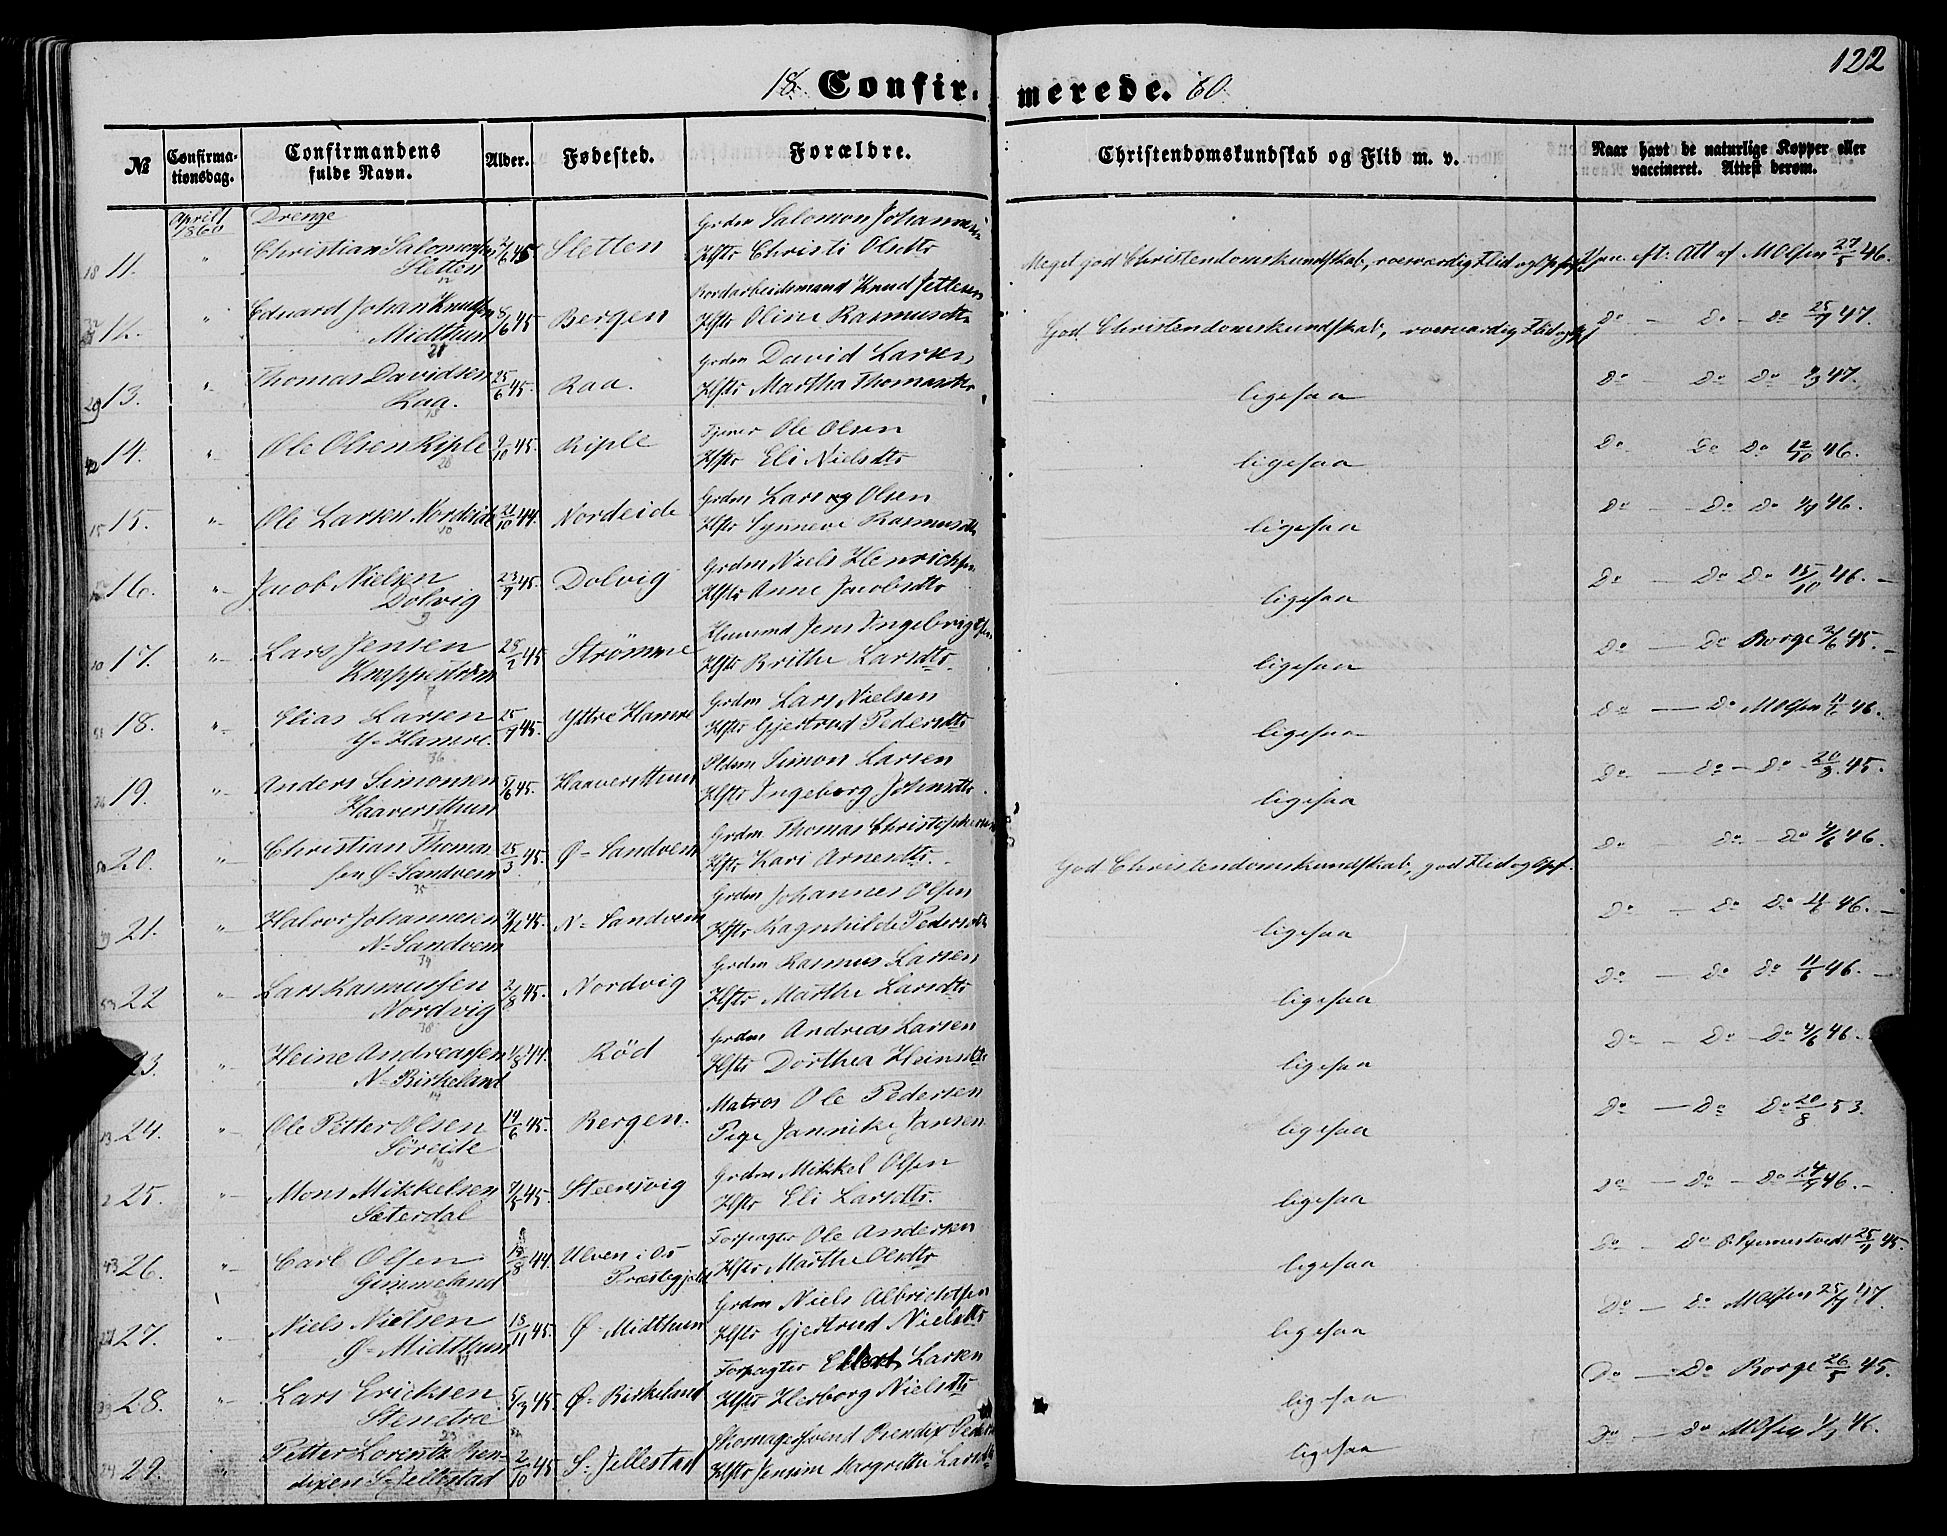 122
18 Confirmerede. 60.
№ Confirmationsdag. Confirmandens fulde Navn. Alder. Fødested. Forældre. Christendomskundskab og Flid m. v. Naar havt de naturlige Kopper eller vaccineret. Attest derom.
April 1860 Drenge
11. " Christian Salomonsen Sletten 45 Sletten Grdm Salomon Johannesen Hstr Christi Olsdtr Meget god Christendomskundskab, roesværdig Flid og Opf. eft. Att af M Olsen 27/5 46.
12. " Eduard Johan Knudsen Midthun 8/6 45 Bergen Bordarbeidsmand Knud Jettesen Hstr Oline Rasmusdtr God Christendomskundskab, roesværdig Flid og Opf Do — Do — do 25/7 47.
13. " Thomas Davidsen Raa. 25/6 45. Raa. Grdm David Larsen Hstr Martha Thomasdtr ligesaa Do — Do Do 47.
14. " Ole Olsen Riple 9/10 45. Riple Tjener Ole Olsen Hstr Eli Nielsdtr ligesaa Do Do Do 12/10 46.
15. " Ole Larsen Nordeide 21/10 44. Nordeide Grdm Lars Olsen Hstr Synneve Rasmusdtr ligesaa Do — Do Do 46.
16. " Jacob Nielsen Dolvig 23/7 45. Dolvig Grdm Niels Henrichsen Hstr Anne Jacobsdtr ligesaa Do — Do Do 15/10 46. —
17. " Lars Jensen Knappestrøm 28/2 45 Strømme Huusmd Jens Ingebrigtsen Hstr Brithe Larsdtr. ligesaa Do — Do Borge 2/6 45. —
18. " Elias Larsen Y. Hamre. 25/7 45. Yttre Hamre Grdm Lars Nielsen Hstr Gjertrud Pedersdtr ligesaa Do — Do M Olsen 11/6 46.
19. " Anders Simonsen Haaversthun 5/6 45. Haaversthun Simon Larsen Hstr Ingeborg Johnsdtr ligesaa Do — Do — Do 20/8 45.
20. " Christian Thomassen Ø. Sandvem 25/3 45. Ø. Sandvem Grdm Thomas Christophersen Hstr Kari Arnesdtr. God Christendomskundskab, god Flid og Opf. Do — Do — Do 46.
21. " Halvor Johannesen N. Sandvem 45. N. Sandvem Grdm Johannes Olsen Hstr Ragnhilde Pedersdtr ligesaa Do — Do Do 46. —
22 " Lars Rasmussen Nordvig 2/8 45. Nordvig Grdm Rasmus Larsen Hstr Marthe Larsdtr ligesaa Do — Do Do 11/6 46. —
23. " Heine Andreassen N. Birkeland 1/8 44. Rød Grdm Andreas Larsen Hstr Dorthea Heinsdtr ligesaa Do — Do — Do 4/6 46.
24. " Ole Petter Olsen Søreide 14/6 45. Bergen. Matros Ole Pedersen Pige Jannike Jansen ligesaa Do — Do Do 20/8 53.
25. " Mons Mikkelsen Sæterdal 45. Steensvig Grdm Mikkel Olsen Hstr Eli Larsdtr. ligesaa Do — Do — Do 46. —
26. " Carl Olsen Gimmeland 18/8 44. Ulven i Os Præstegjeld Forpagter Ole Andersen Hstr Marthe Olsdtr ligesaa Do — Do 45.
27. " Niels Nielsen Ø. Midthun 13/11 45. Ø. Midthun Grdm Niels Albrichtsen Hstr Gjertrud Nielsdtr ligesaa Do — Do M Olsen 25/7 47.
28. " Lars Ericksen Stenetræ 5/3 45. Ø. Birkeland Forpagter Larsen Hstr Herborg Nielsdtr ligesaa Do — Do Borge 26/5 45.
29. " Petter Lorentz Bendixen S. Jellestad 2/10 45 S. Jellestad Skomagersvend Bendix Hstr Jensine Margrethe Larsdtr ligesaa Do — Do M Olsen 46.